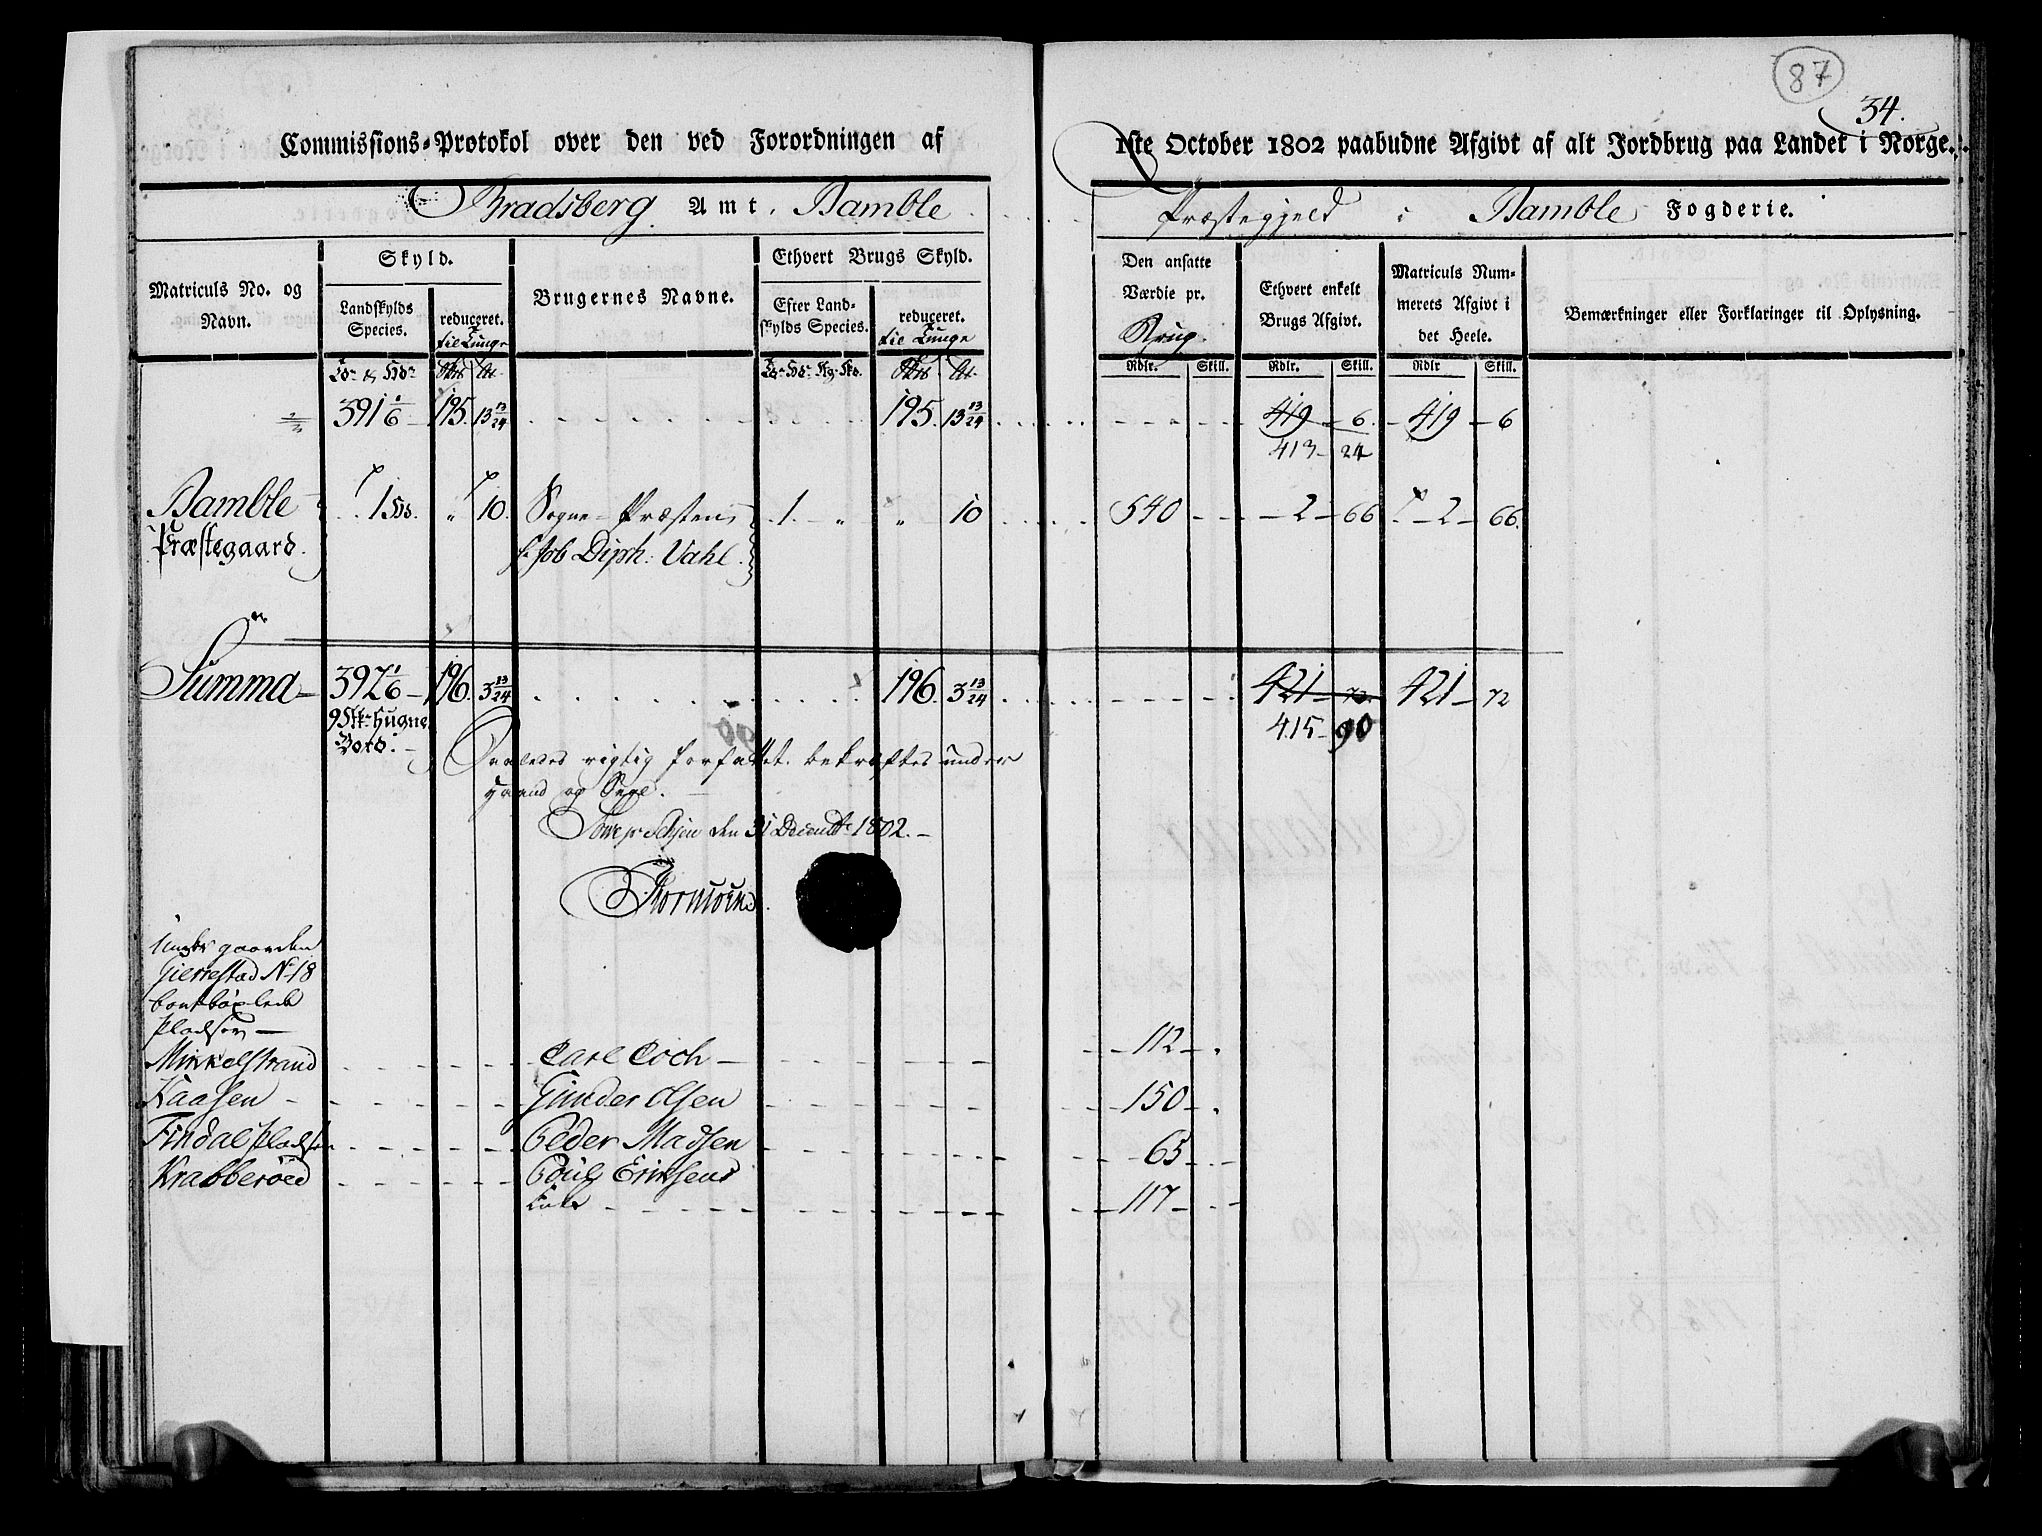 87
34.
Commissions-Protokol over den ved Forordningen af 1ste October 1802 paabudne Afgivt af alt Jordbrug paa Landet i Norge.
Bradsberg Amt. Bamble Præstegjeld i Bamble Fogderie.
Matriculs No. og Navn.
Skyld.
Landskylds Species.
reduceret. til Tunge
Brugernes Navne.
Ethvert Brugs Skyld.
Efter Landskylds Species.
reduceret. til Tunge
Den ansatte Værdie pr. Brug.
Ethvert enkelt Brugs Afgivt.
Matriculs Nummerets Afgivt i det Heele.
Bemærkninger eller Forklaringer til Oplysning.
Rdlr. Skill. Rdlr. Skill. Rdlr Skill.
391 1/6 195. 13 13/24 195. 13 13/24 419 6. 419 6
413 24
Bamble 1 10. Sogne-Præsten 1. " " 10 540 2 66 2 66.
Præstegaard. Hr. Job Diph: Vahl.
Summa 392 1/6 196. 3 13/24 196. 3 13/24 421 72. 421 72
415 90
9 Stk: Hugne
Bord.
Saaledes rigtig forfattet. bekræftes under
Haand og Segl.
den 31 Decembr 1802.
Under gaarden
Gierrestad No 18
bortbøxlede
pladser
Mikkelstrand Carl Coch 112
Kaasen Gunder Olsen 150
Findal pladsen Peder Madsen 65
Krabberöed Poul Eriksens
Enke 117